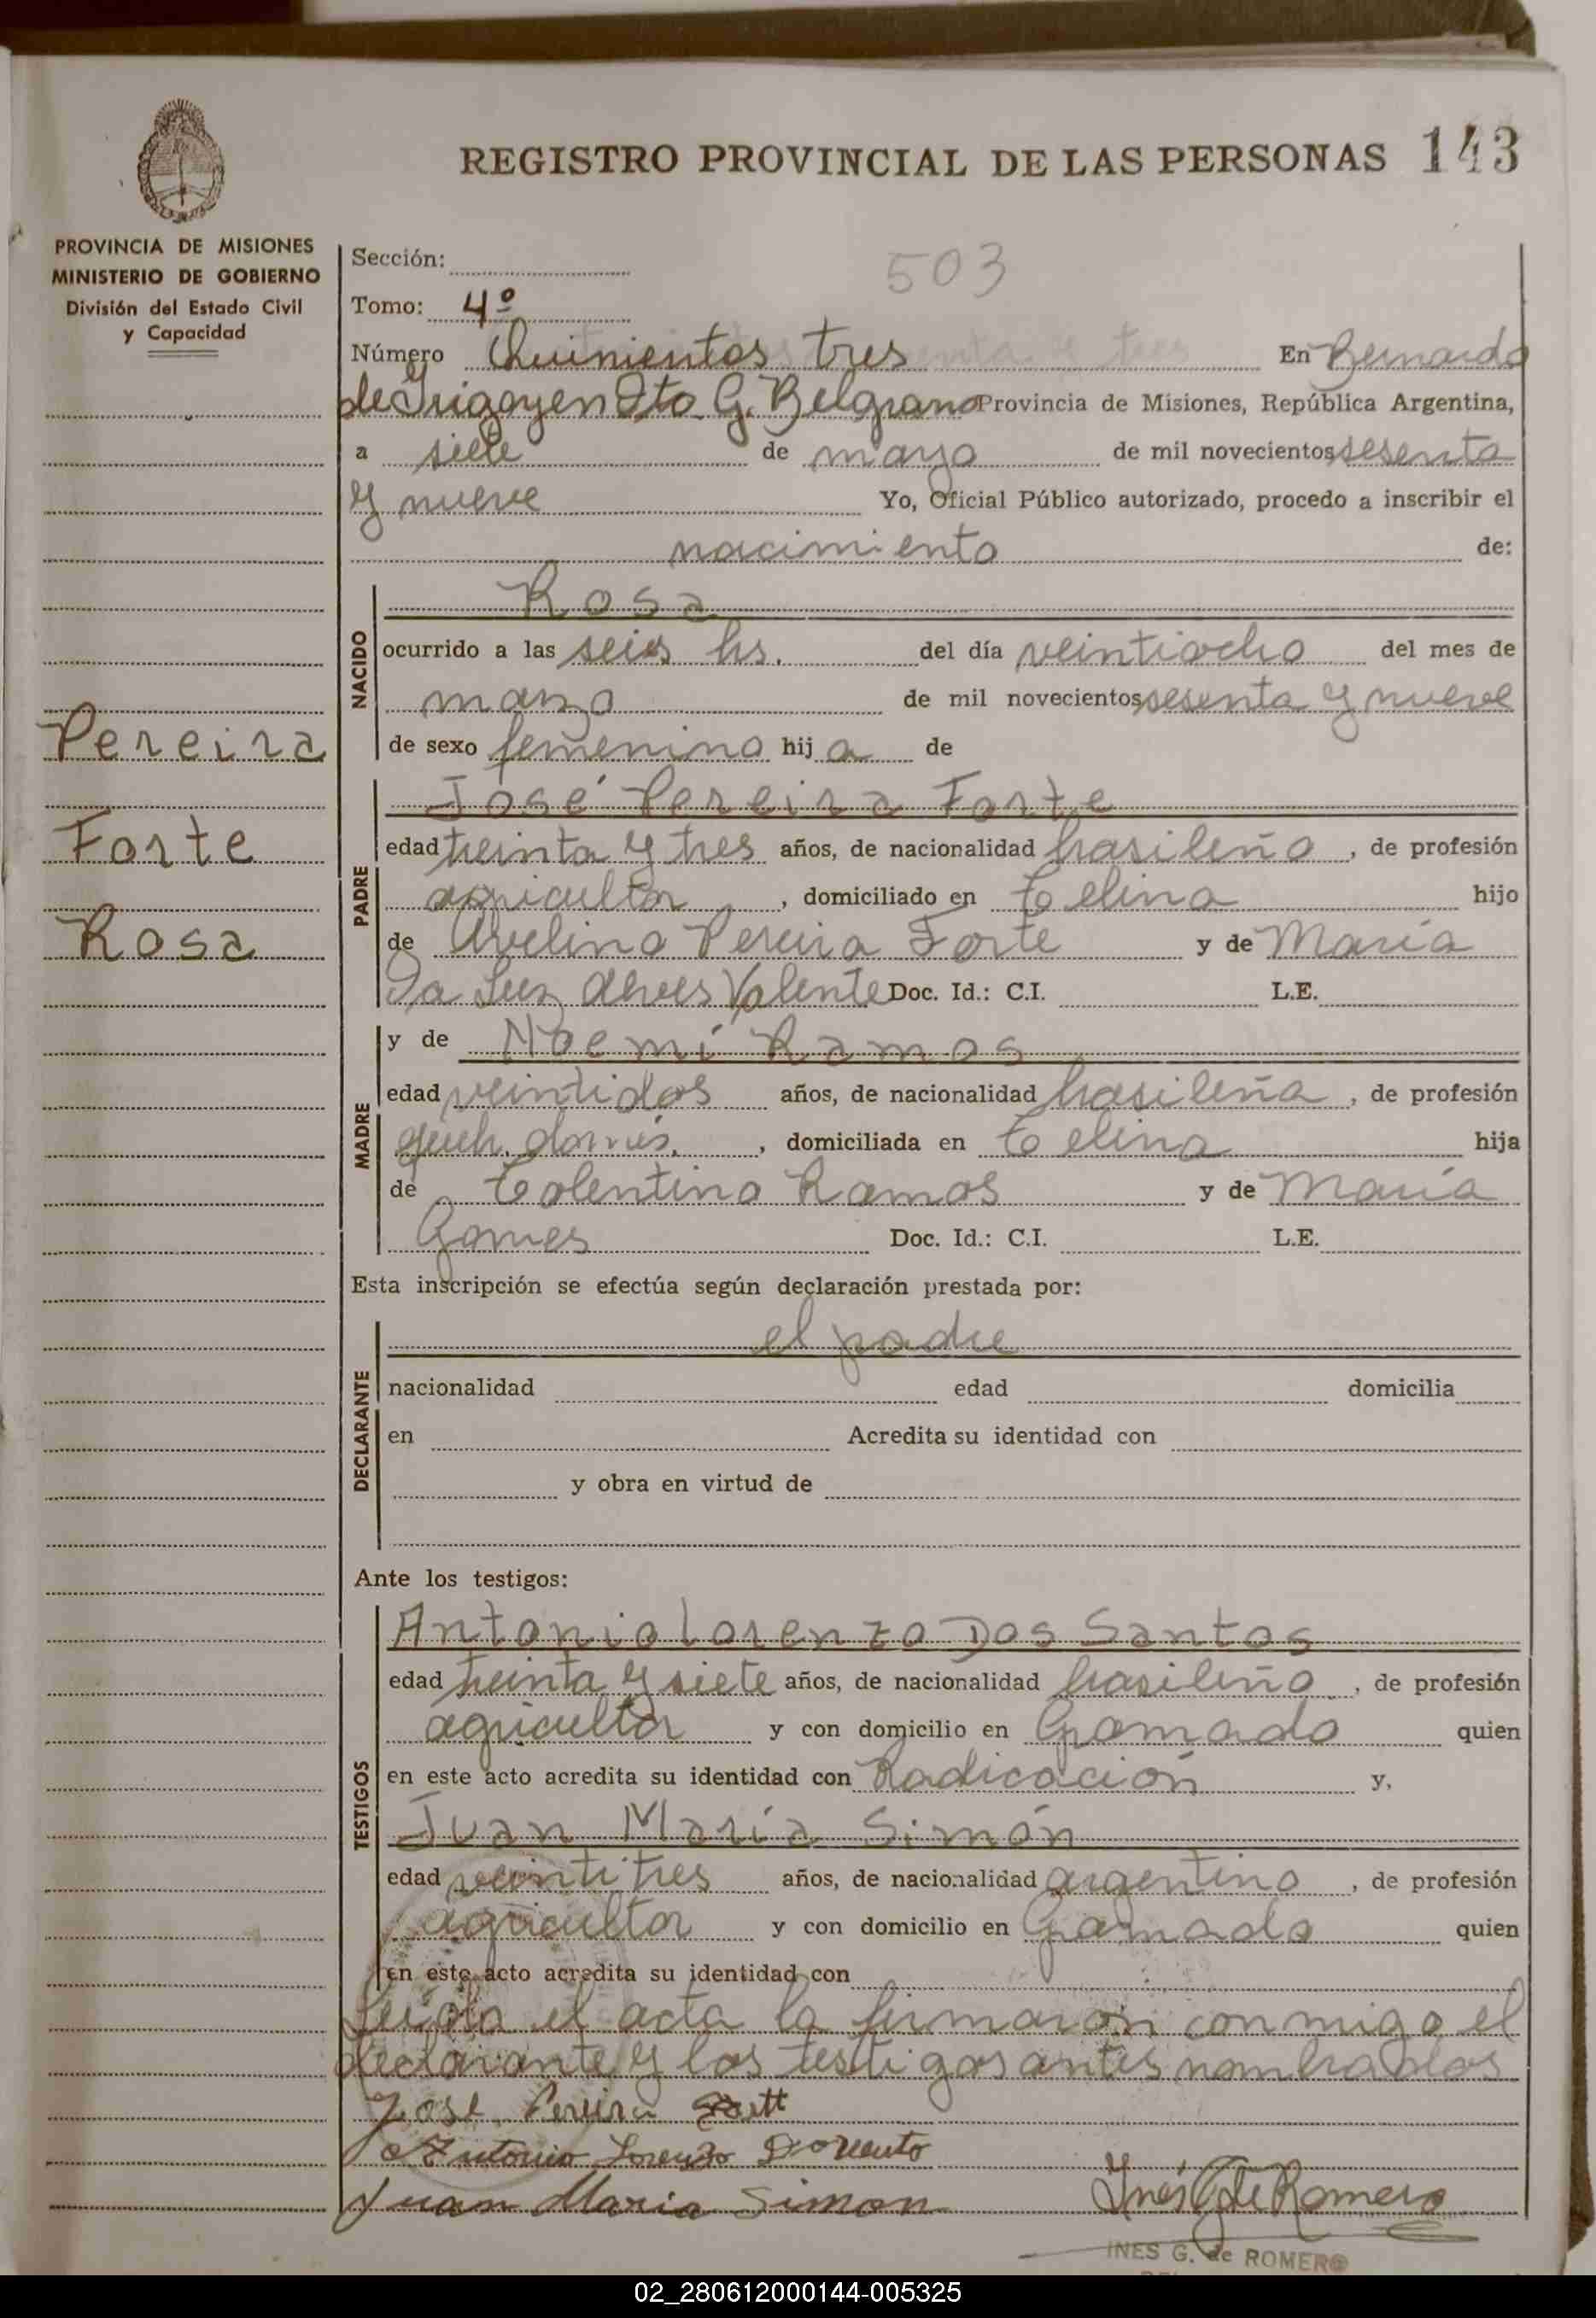 REGISTRO PROVINCIAL DE LAS PERSONAS 143
PROVINCIA DE MISIONES
MINISTERIO DE GOBIERNO
División del Estado Civil
y Capacidad
Pereira
Forte
Rosa
Sección:
503
Tomo: 4º
Número Quinientos tres En Bernardo
de Irigoyen Dto G. Belgrano Provincia de Misiones, República Argentina,
a siete de mayo de mil novecientos sesenta
y nueve Yo, Oficial Público autorizado, procedo a inscribir el
nacimiento de:
NACIDO
Rosa
ocurrido a las seis hs. del día veintiocho del mes de
marzo de mil novecientos sesenta y nueve
de sexo femenino hij a de
PADRE
José Pereira Forte
edad treinta y tres años, de nacionalidad brasileño, de profesión
agricultor, domiciliado en Celina hijo
de Avelino Pereira Forte y de María
Da Luz Alves Valente Doc. Id.: C.I. L.E.
MADRE
y de Noemí Ramos
edad veintidos años, de nacionalidad brasileña, de profesión
queh. domés., domiciliada en Celina hija
de Colentino Ramos y de María
Gomes Doc. Id.: C.I. L.E.
Esta inscripción se efectúa según declaración prestada por:
DECLARANTE
el padre
nacionalidad edad domicilia
en Acredita su identidad con
y obra en virtud de
Ante los testigos:
TESTIGOS
Antonio Lorenzo Dos Santos
edad treinta y siete años, de nacionalidad brasileño, de profesión
agricultor y con domicilio en Gramado quien
en este acto acredita su identidad con Radicación y,
Juan María Simón
edad veintitres años, de nacionalidad argentino, de profesión
agricultor y con domicilio en Gramado quien
en este acto acredita su identidad con
Leída el acta la firmaron conmigo el
declarante y los testigos antes nombrados
José Pereira
Antonio Lorenzo
Juan Maria Simon
Inés G de Romero
INES G. de ROMERO
02_280612000144-005325